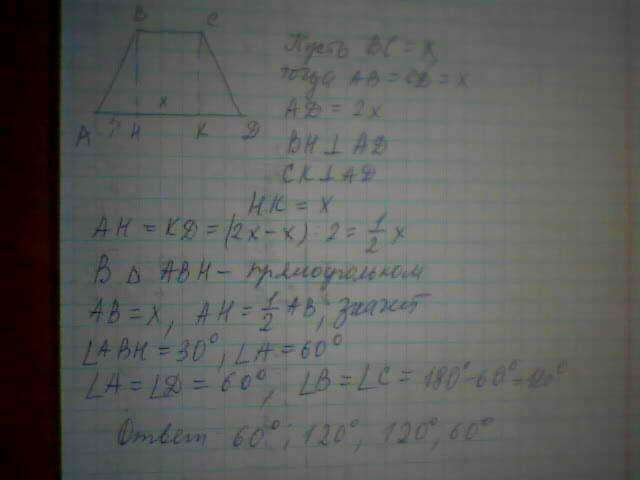 B C
A ? H x K D
Пусть BC = x
тогда AB = CD = x
AD = 2x
BH ⊥ AD
CK ⊥ AD
HK = x
AH = KD = (2x-x) : 2 = 1/2 x
В △ ABH - прямоугольном
AB = x, AH = 1/2 AB, значит
∠ABH = 30°, ∠A = 60°
∠A = ∠D = 60°, ∠B = ∠C = 180° - 60° = 120°
Ответ 60°; 120°, 120°, 60°